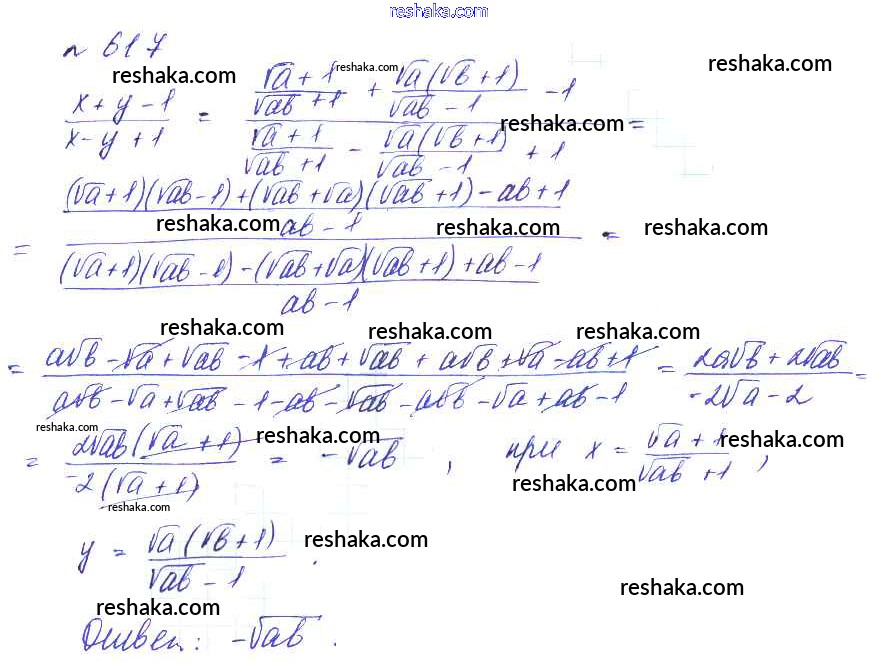 reshaka.com
№ 617
reshaka.com reshaka.com reshaka.com
(x + y - 1)/(x - y + 1) = ((√a + 1)/(√ab + 1) + √a(√b + 1)/(√ab - 1) - 1)/((√a + 1)/(√ab + 1) - √a(√b + 1)/(√ab - 1) + 1) =
reshaka.com
= (((√a + 1)(√ab - 1) + (√ab + √a)(√ab + 1) - ab + 1)/(ab - 1))/(((√a + 1)(√ab - 1) - (√ab + √a)(√ab + 1) + ab - 1)/(ab - 1)) =
reshaka.com reshaka.com reshaka.com
reshaka.com reshaka.com reshaka.com
= (a√b - √a + √ab - 1 + ab + √ab + a√b + √a - ab + 1)/(a√b - √a + √ab - 1 - ab - √ab - a√b - √a + ab - 1) = (2a√b + 2√ab)/(-2√a - 2) =
reshaka.com reshaka.com reshaka.com
= 2√ab(√a + 1)/(-2(√a + 1)) = -√ab, при x = (√a + 1)/(√ab + 1),
reshaka.com reshaka.com
y = √a(√b + 1)/(√ab - 1).
reshaka.com
reshaka.com
reshaka.com
Ответ: -√ab.